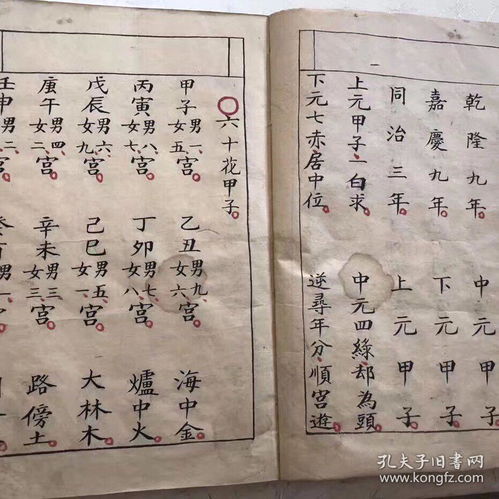 乾隆九年 中元甲子
嘉慶九年 下元甲子
同治三年 上元甲子
上元甲子一白求 中元四綠却為頭
下元七赤居中位 逆尋年分順宮遊
六十花甲子
甲子男一女五宮 乙丑男九女六宮 海中金
丙寅男八女七宮 丁卯男七女八宮 爐中火
戊辰男六女九宮 己巳男五女一宮 大林木
庚午男四女二宮 辛未男三女三宮 路傍土
壬申男二女 宮
孔夫子旧書网
www.kongfz.com